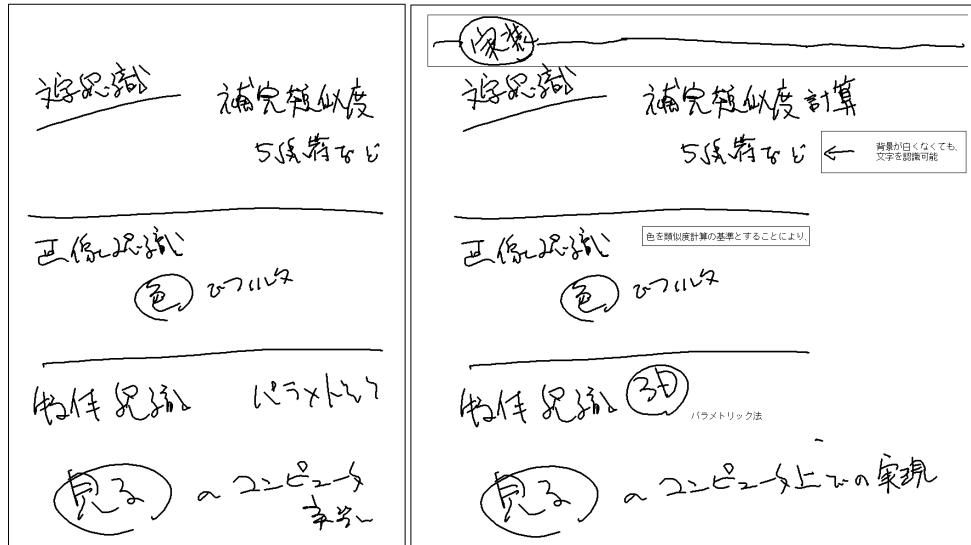 文字認識
補完類似度
など
画像認識
色 でフィルタ
物体認識
パラメトリック
見る のコンピュータ
文字認識
補完類似度計算
など
背景が白くなくても、
文字を認識可能
画像認識
色を類似度計算の基準とすることにより、
色 でフィルタ
物体認識 3D
パラメトリック法
見る のコンピュータ上での実現